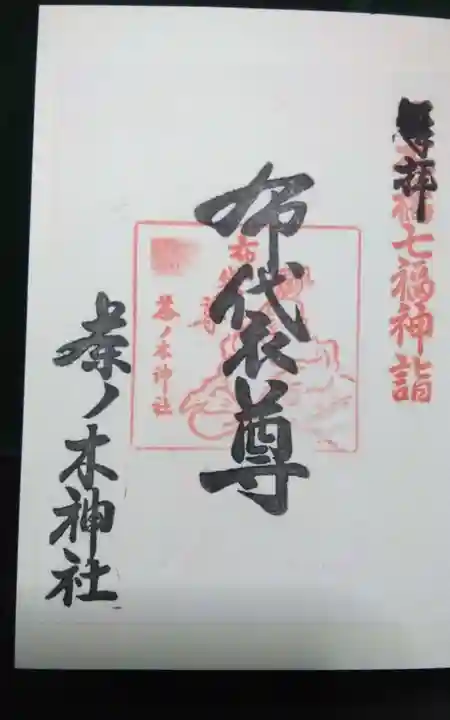 拝
七福神詣
布袋尊
布袋尊
茶ノ木神社
茶ノ木神社